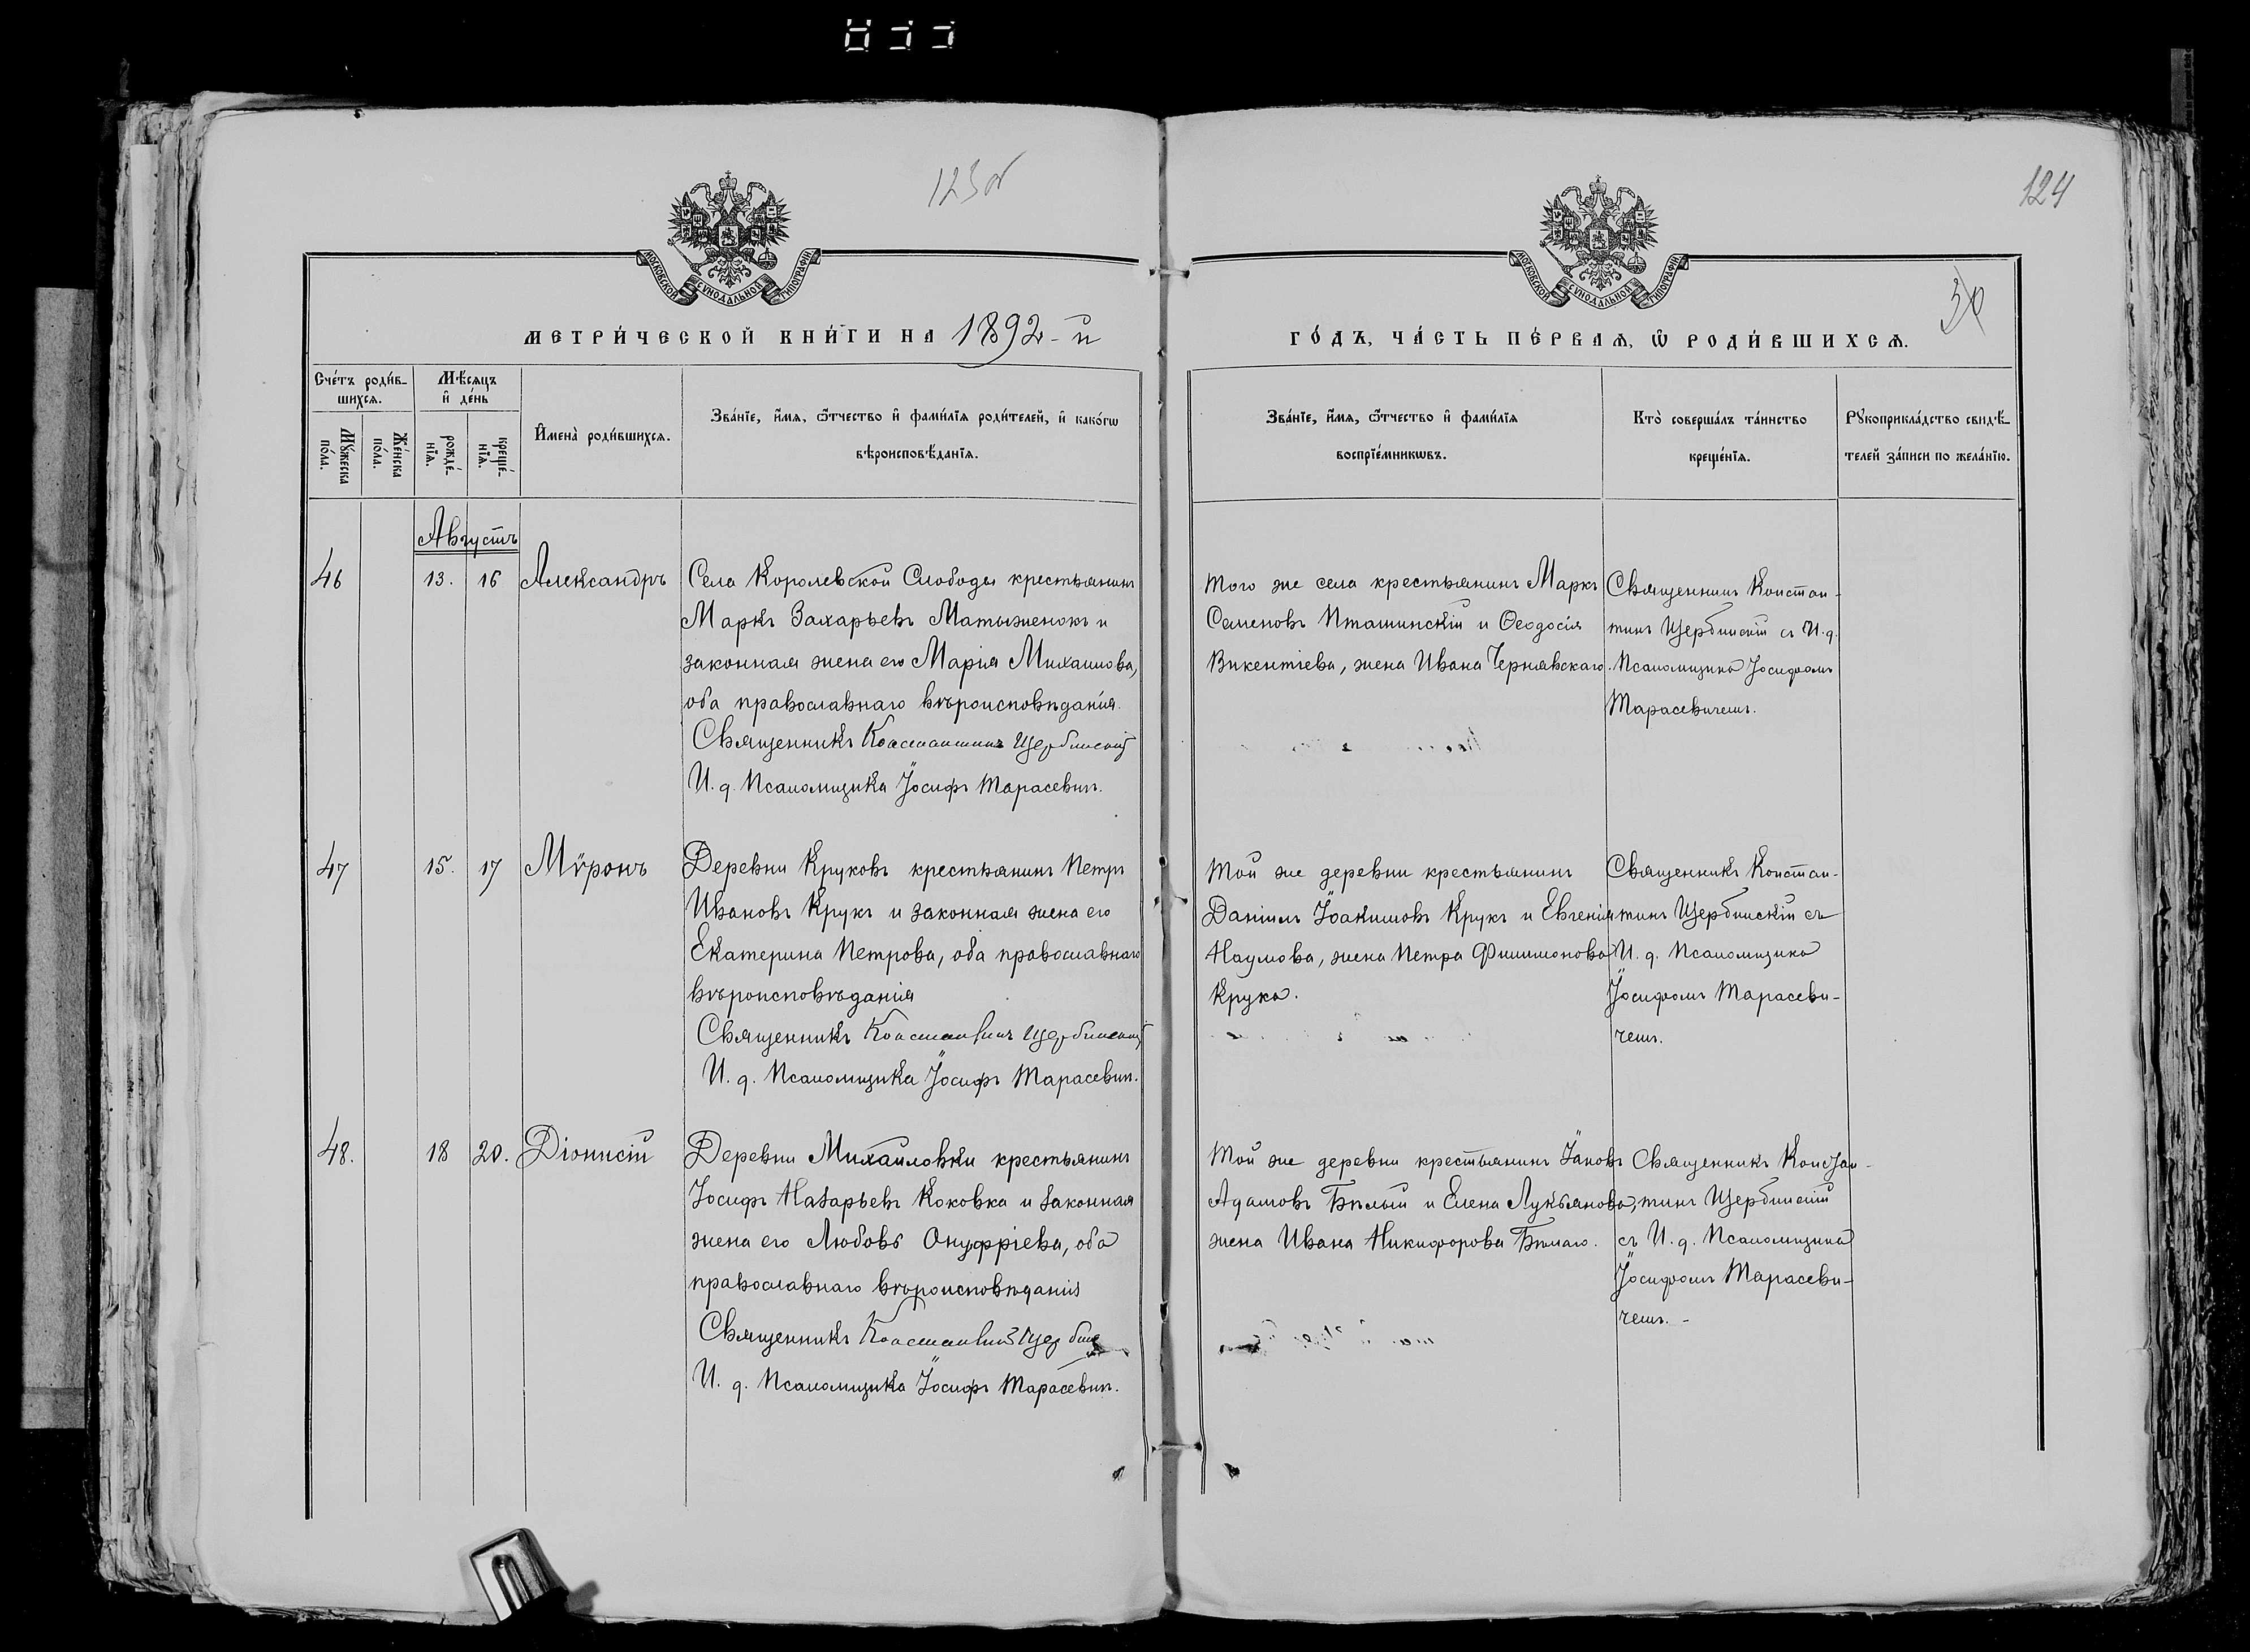 123 об
124
30
МОСКОВСКОЙ СѴНОДАЛЬНОЙ ТИПОГРАФІИ
МОСКОВСКОЙ СѴНОДАЛЬНОЙ ТИПОГРАФІИ
МЕТРИ́ЧЕСКОЙ КНИ́ГИ НА 1892-й
ГО́ДЪ, ЧА́СТЬ ПЕ́РВАѦ, Ѽ РОДИ́ВШИХСѦ.
Сче́тъ роди́в-
шихсѧ.
Мѣ́сѧцъ
и҆ де́нь
Мꙋ́жеска
по́ла.
Же́нска
по́ла.
рожде́-
нїѧ.
креще́-
нїѧ.
И҆мена̀ роди́вшихсѧ.
Зва́нїе, и҆́мѧ, ѻ҆́тчество и҆ фами́лїѧ роди́телей, и҆ како́гѡ
вѣроисповѣ́данїѧ.
Зва́нїе, и҆́мѧ, ѻ҆́тчество и҆ фами́лїѧ
воспрїе́мникѡвъ.
Кто̀ соверша́лъ та́инство
креще́нїѧ.
Рꙋкоприкла́дство свидѣ́-
телей за́писи по жела́нїю.
Августъ
46
13. 16 Александръ
Села Королевской Слободы крестьянинъ
Маркъ Захарьевъ Матыженокъ и
законная жена его Марія Михаилова,
оба православнаго вѣроисповѣданія.
Священникъ Константинъ Щербинскій
И. д. Псаломщика Іосифъ Тарасевичъ.
Того же села крестьянинъ Маркъ
Семеновъ Пташинскій и Ѳеодосія
Викентіева, жена Ивана Чернявскаго.
Священникъ Констан-
тинъ Щербинскій съ И. д.
Псаломщика Іосифомъ
Тарасевичемъ.
47
15. 17 Мѵронъ
Деревни Круковъ крестьянинъ Петръ
Ивановъ Крукъ и законная жена его
Екатерина Петрова, оба православнаго
вѣроисповѣданія
Священникъ Константинъ Щербинскій
И. д. Псаломщика Іосифъ Тарасевичъ.
Той же деревни крестьянинъ
Даніилъ Іоакимовъ Крукъ и Евгенія
Наумова, жена Петра Филимонова
Крука.
Священникъ Констан-
тинъ Щербинскій съ
И. д. Псаломщика
Іосифомъ Тарасеви-
чемъ.
48.
18 20. Діонисій
Деревни Михайловки крестьянинъ
Іосифъ Назарьевъ Коковка и законная
жена его Любовь Онуфріева, оба
православнаго вѣроисповѣданія
Священникъ Константинъ Щербинс
И. д. Псаломщика Іосифъ Тарасевичъ.
Той же деревни крестьянинъ Іаковъ
Адамовъ Бѣлый и Елена Лукьянова,
жена Ивана Никифорова Бѣлаго.
Священникъ Констан-
тинъ Щербинскій
съ И. д. Псаломщика
Іосифомъ Тарасеви-
чемъ. -